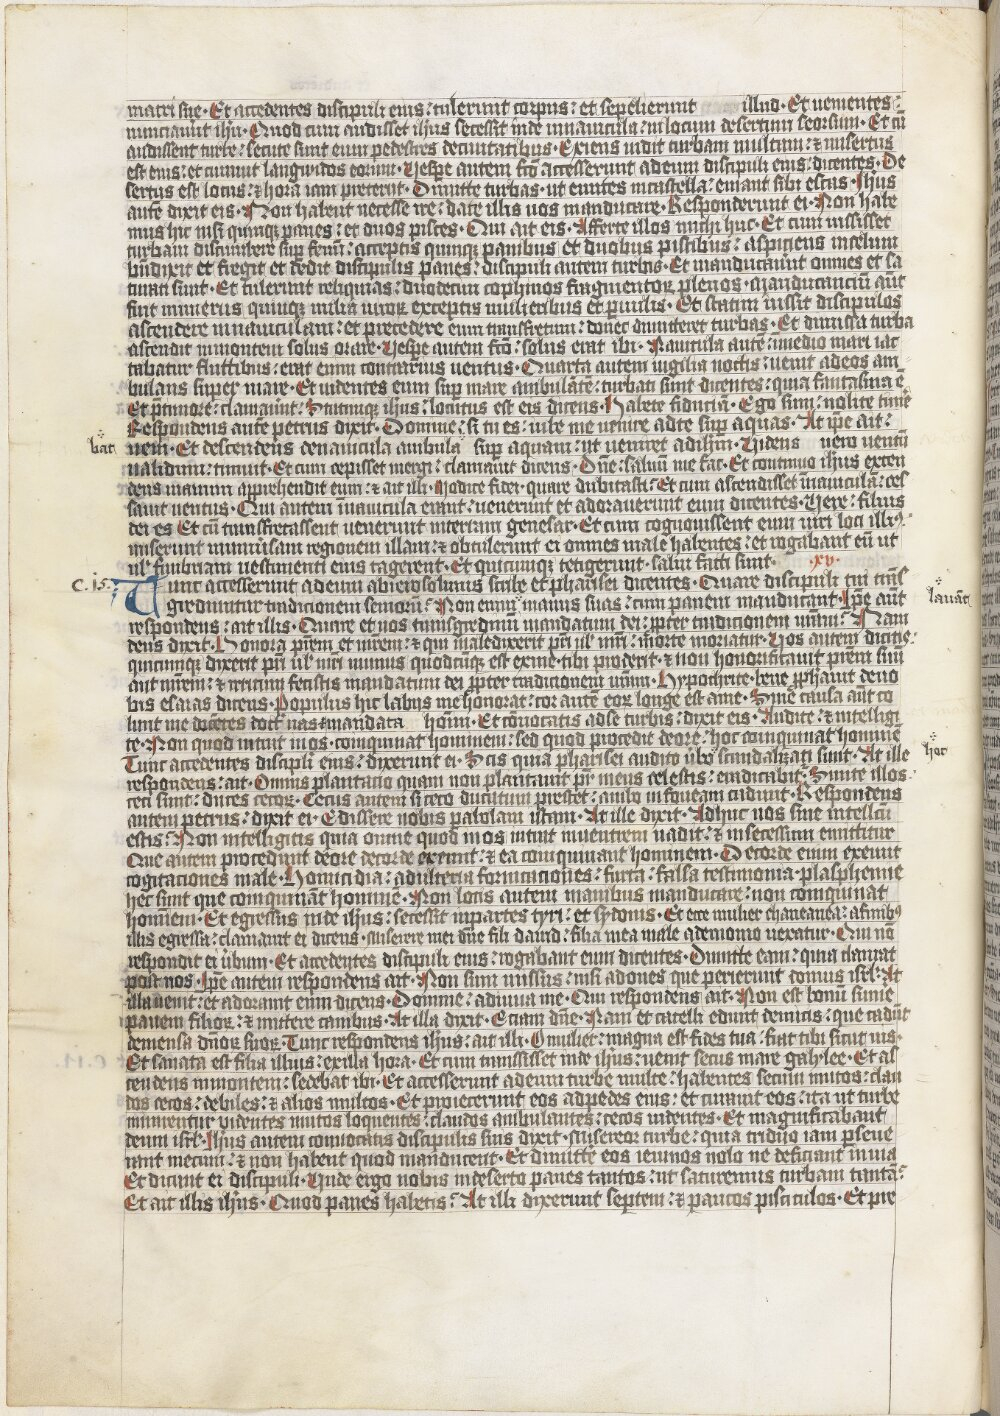 matri sue · Et accedentes discipuli eius : tulerunt corpus : et sepelierunt illud · Et uenientes :
nunciauerūt ihū · Quod cum audisset ihūs secessit inde in nauicula : in locum desertum seorsum · Et cū
audissent turbe : secute sunt eum pedestres de ciuitatibus · Exiens uidit turbam multam : ⁊ misertus
est eius : et curauit languidos eorum · Uesꝑe autem fcō accesserunt ad eum discipuli eius : dicentes · De
sertus est locus : ⁊ hora iam preteriit · Dimitte turbas · ut euntes in castella : emant sibi escas · Ihūs
autē dixit eis · Non habent necesse ire : date illis uos manducare · Responderunt ei · Non habe
mus hic nisi quinqꝫ panes : et duos pisces · Qui ait eis · Afferte illos michi huc · Et cum iussisset
turbam discumbere suꝑ fenū : acceptis quinqꝫ panibus et duobus piscibus : aspiciens in celum
bn̄dixit et fregit et dedit discipulis panes : discipuli autem turbis · Et manducauerūt omnes et sa
turati sunt · Et tulerunt reliquias : duodecim cophinos fragmentoꝝ plenos · Manducanciū aūt
fuit numerus quinqꝫ milia uiroꝝ exceptis mulieribus et paruulis · Et statim iussit discipulos
ascendere in nauiculam : et precedere eum trans fretum : donec dimitteret turbas · Et dimissa turba
ascendit in montem solus orare · Uesꝑe autem fcō : solus erat ibi · Nauicula autē : in medio mari iac
tabatur fluctibus : erat enim contrarius uentus · Quarta autem uigilia noctis : uenit ad eos am
bulans super mare · Et uidentes eum suꝑ mare ambulātē : turbati sunt dicentes : quia fantasma ē
Et p̄ timore : clamauerūt · Statimqꝫ ihūs : locutus est eis dicens · Habete fiduciā · Ego sum : nolite time
Respondens autē petrus dixit · Domine : si tu es : iube me uenire ad te suꝑ aquas · At ipē ait :
bat
ueni · Et descendens de nauicula ambula suꝑ aquam : ut ueniret ad ihm̄ · Uidens uero uentū
ualidum : timuit · Et cum cepisset mergi : clamauit dicens · Dn̄e : saluū me fac · Et continuo ihūs exten
dens manum apprehendit eum : ⁊ ait illi · Modice fidei · quare dubitasti · Et cum ascendisset ī nauiculā : ces
sauit uentus · Qui autem in nauicula erant : uenerunt et adorauerunt eum dicentes · Uere : filius
dei es Et cū transfretassent uenerunt in terram genesar · Et cum cognouissent eum uiri loci illiꝰ ·
miserunt in uniuersam regionem illam : ⁊ obtulerunt ei omnes male habentes : et rogabant eū ut
uł fimbriam uestimenti eius tagerent · Et quicumqꝫ tetigerunt · salui facti sunt · xv ·
C. 15.
Tunc accesserunt ad eum ab ierosolimis scribe et pharisei dicentes · Quare discipuli tui trāſ
grediuntur tradicionem seniorū : Non enim manus suas : cum panem manducant · Ipē aūt
lauāt
respondens : ait illis · Quare et uos transgredimī mandatum dei : ꝓpter tradicionem urām : Nam
deus dixit · Honora prēm et mrēm : ⁊ qui maledixerit pr̄i uł mr̄i : morte moriatur · Uos autem dicitis :
quicumqꝫ dixerit pr̄i uł mr̄i munus quodcūqꝫ est ex me · tibi proderit · ⁊ non honorificauit prēm suū
aut mrēm : ⁊ irritum fecistis mandatum dei ꝓpter tradicionem urām · Hypochrite · bene ꝓphauit de uo
bis esaias dicens · Populus hic labiis me honorat : cor autē eoꝝ longe est a me · Sine causa aūt co
lunt me docētes doct nas mandata homī · Et conuocatis ad se turbis : dixit eis · Audite : ⁊ intelligi
te · Non quod intrat in os · coinquinat hominem : sed quod procedit de ore : hoc coinquinat hominē
hoc
Tunc accedentes discipuli eius : dixerunt ei · Scis quia pharisei audito ūbo scandalizati sunt · At ille
respondens : ait · Omnis plantacio quam non plantauit pr̄ meus celestis : eradicabit̄ · Sinite illos ·
ceci sunt : duces cecoꝝ · Cecus autem si ceco ducatum prestet : ambo in foueam cadunt · Respondens
autem petrus : dixit ei · Edissere nobis parabolam istam · At ille dixit · Adhuc uos sine intellcū
estis : Non intelligitis quia omne quod in os intrat in uentrem uadit : ⁊ in secessum emittitur
Que autem procedunt de ore de corde exeunt : ⁊ ea coinquinant hominem · De corde enim exeunt
cogitaciones male · Homicidia : adulteria fornicaciones : furta : falsa testimonia · blasphemie
hec sunt que coinquināt hominē · Non lotis autem manibus manducare : non coinquinat
hominem · Et egressus inde ihūs : secessit in partes tyri : et sydonis · Et ecce mulier chananea : a finibꝰ
illis egressa : clamauit ei dicens · Miserere mei dn̄e fili dauid : filia mea male a demonio uexatur · Qui nō
respondit ei ūbum · Et accedentes discipuli eius : rogabant eum dicentes · Dimitte eam : quia clamat
post nos · Ipē autem respondens ait · Non sum missus : nisi ad oues que perierunt domus isrł · At
illa uenit : et adorauit eum dicens · Domine : adiuua me · Qui respondens ait · Non est bonū sume
panem filioꝝ : ⁊ mittere canibus · At illa dixit · Eciam dn̄e · Nam et catelli edunt de micis : que cadūt
de mensa dn̄oꝝ suoꝝ · Tunc respondens ihūs : ait illi · O mulier : magna est fides tua : fiat tibi sicut uis ·
Et sanata est filia illius : ex illa hora · Et cum transisset inde ihūs : uenit secus mare galylee · Et as
cendens in montem : sedebat ibi · Et accesserunt ad eum turbe multe : habentes secum mutos : clau
dos cecos : debiles : ⁊ alios multos · Et proiecerunt eos ad pedes eius : et curauit eos : ita ut turbe
mirarentur uidentes mutos loquentes : claudos ambulantes : cecos uidentes · Et magnificabant
deum isrł · Ihūs autem conuocatis discipulis suis dixit · Misereor turbe : quia triduo iam ꝑseue
rant mecum : ⁊ non habent quod manducent · Et dimitte eos ieiunos nolo ne deficiant in uia
Et dicunt ei discipuli · Unde ergo nobis in deserto panes tantos : ut saturemus turbam tantā :
Et ait illis ihūs · Quod panes habetis : At illi dixerunt septem : ⁊ paucos pisciculos · Et pre